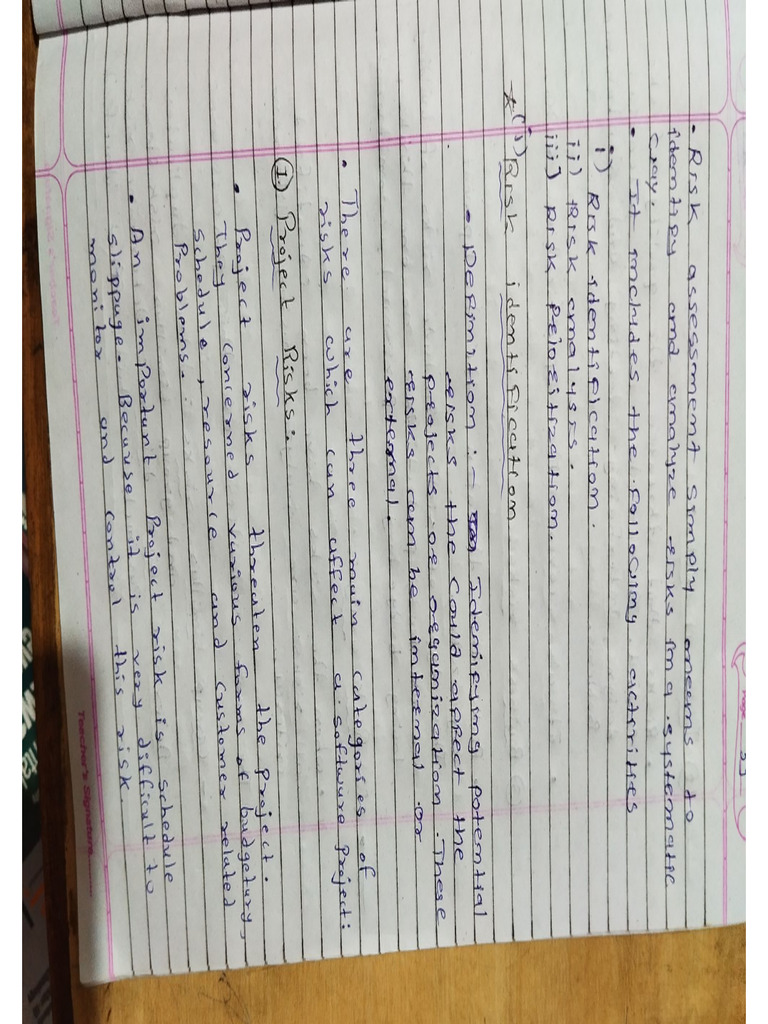 Page 53
• Risk assessment simply means to
identify and analyze risks in a systematic
way.
• It includes the following activities
i) Risk identification.
ii) Risk analysis.
iii) Risk Peiozitization.
*(i) Risk identification
• Definition :- Idenifying potential
risks the could affect the
projects or organization. These
risks can be internal or
external.
• There are three main categories of
risks which can affect a software Project:
1. Project Risks:
• Project risks threaten the Project.
They concerned various forms of budgetary,
Schedule, resource and customer related
Problems.
• An important Project risk is schedule
slippage. Because it is very difficult to
monitor and control this risk.
Teacher's Signature